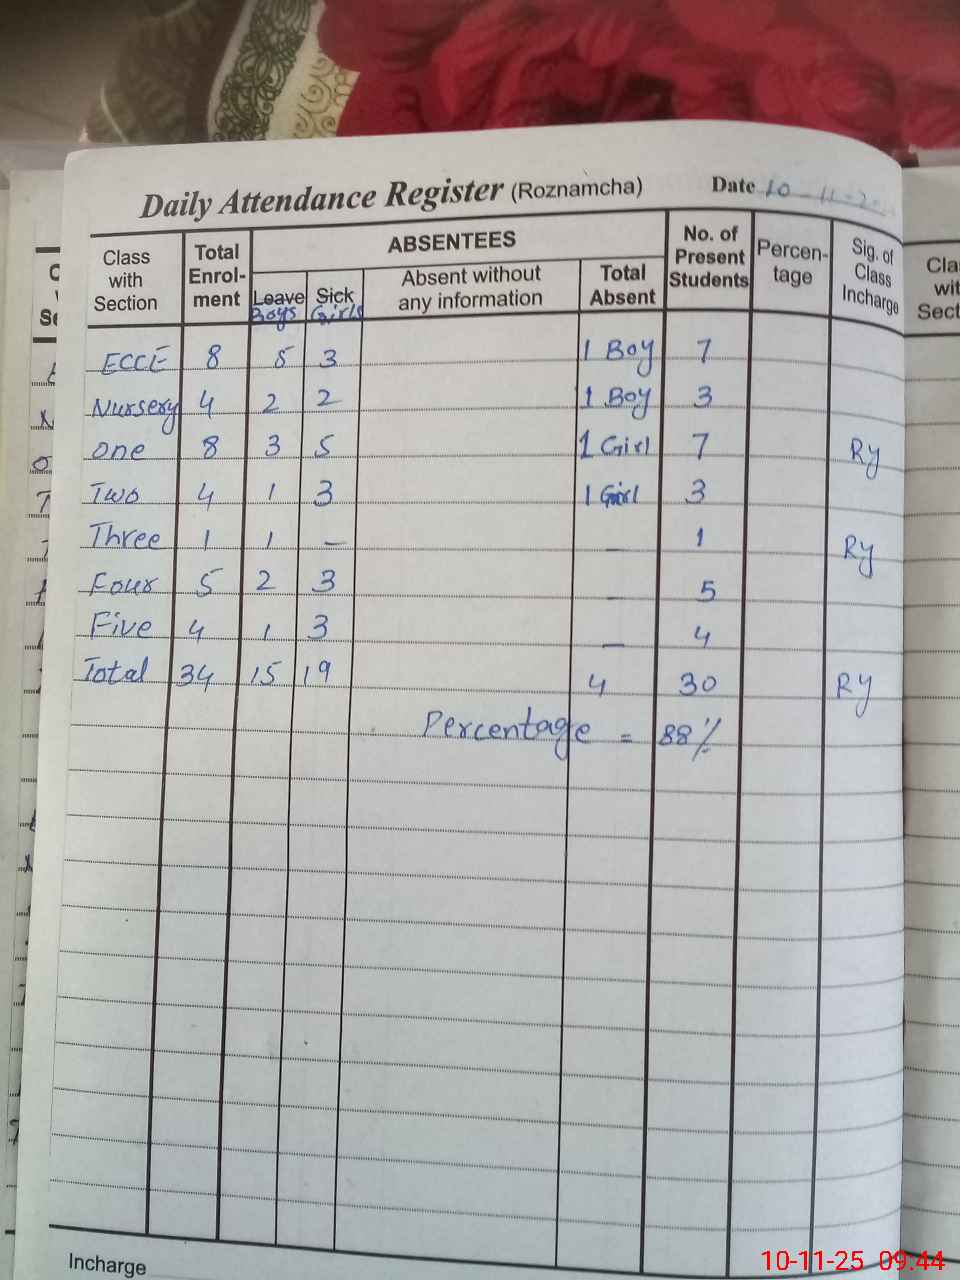 Daily Attendance Register (Roznamcha) Date 10-11-2
Class with Section Total Enrol-ment ABSENTEES No. of Present Students Percen-tage Sig. of Class Incharge
Leave Sick Absent without any information Total Absent
Boys Girls
ECCE 8 5 3 1 Boy 7
Nursery 4 2 2 1 Boy 3
One 8 3 5 1 Girl 7 Ry
Two 4 1 3 1 Girl 3
Three 1 1 – – 1 Ry
Four 5 2 3 – 5
Five 4 1 3 – 4
Total 34 15 19 4 30 Ry
Percentage = 88%
Incharge
10-11-25 09:44